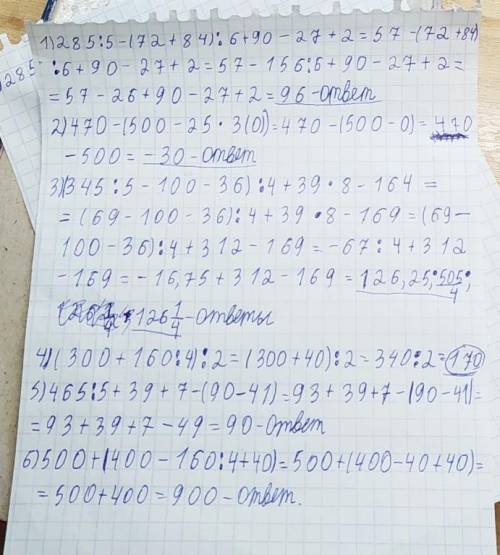 1) 285:5-(72+84):6+90-27+2=57-(72+84)
:6+90-27+2=57-156:6+90-27+2=
=57-26+90-27+2=96-ответ
2) 470-(500-25·3(0))=470-(500-0)=470
-500=-30-ответ
3) (345:5-100-36):4+39·8-164=
=(69-100-36):4+39·8-169=(69-
100-36):4+312-169=-67:4+312
-169=-16,75+312-169=126,25; 505/4;
126 1/4-ответы
4) (300+160:4):2=(300+40):2=340:2=170
5) 465:5+39+7-(90-41)=93+39+7-(90-41)=
=93+39+7-49=90-ответ
6) 500+(400-160:4+40)=500+(400-40+40)=
=500+400=900-ответ.